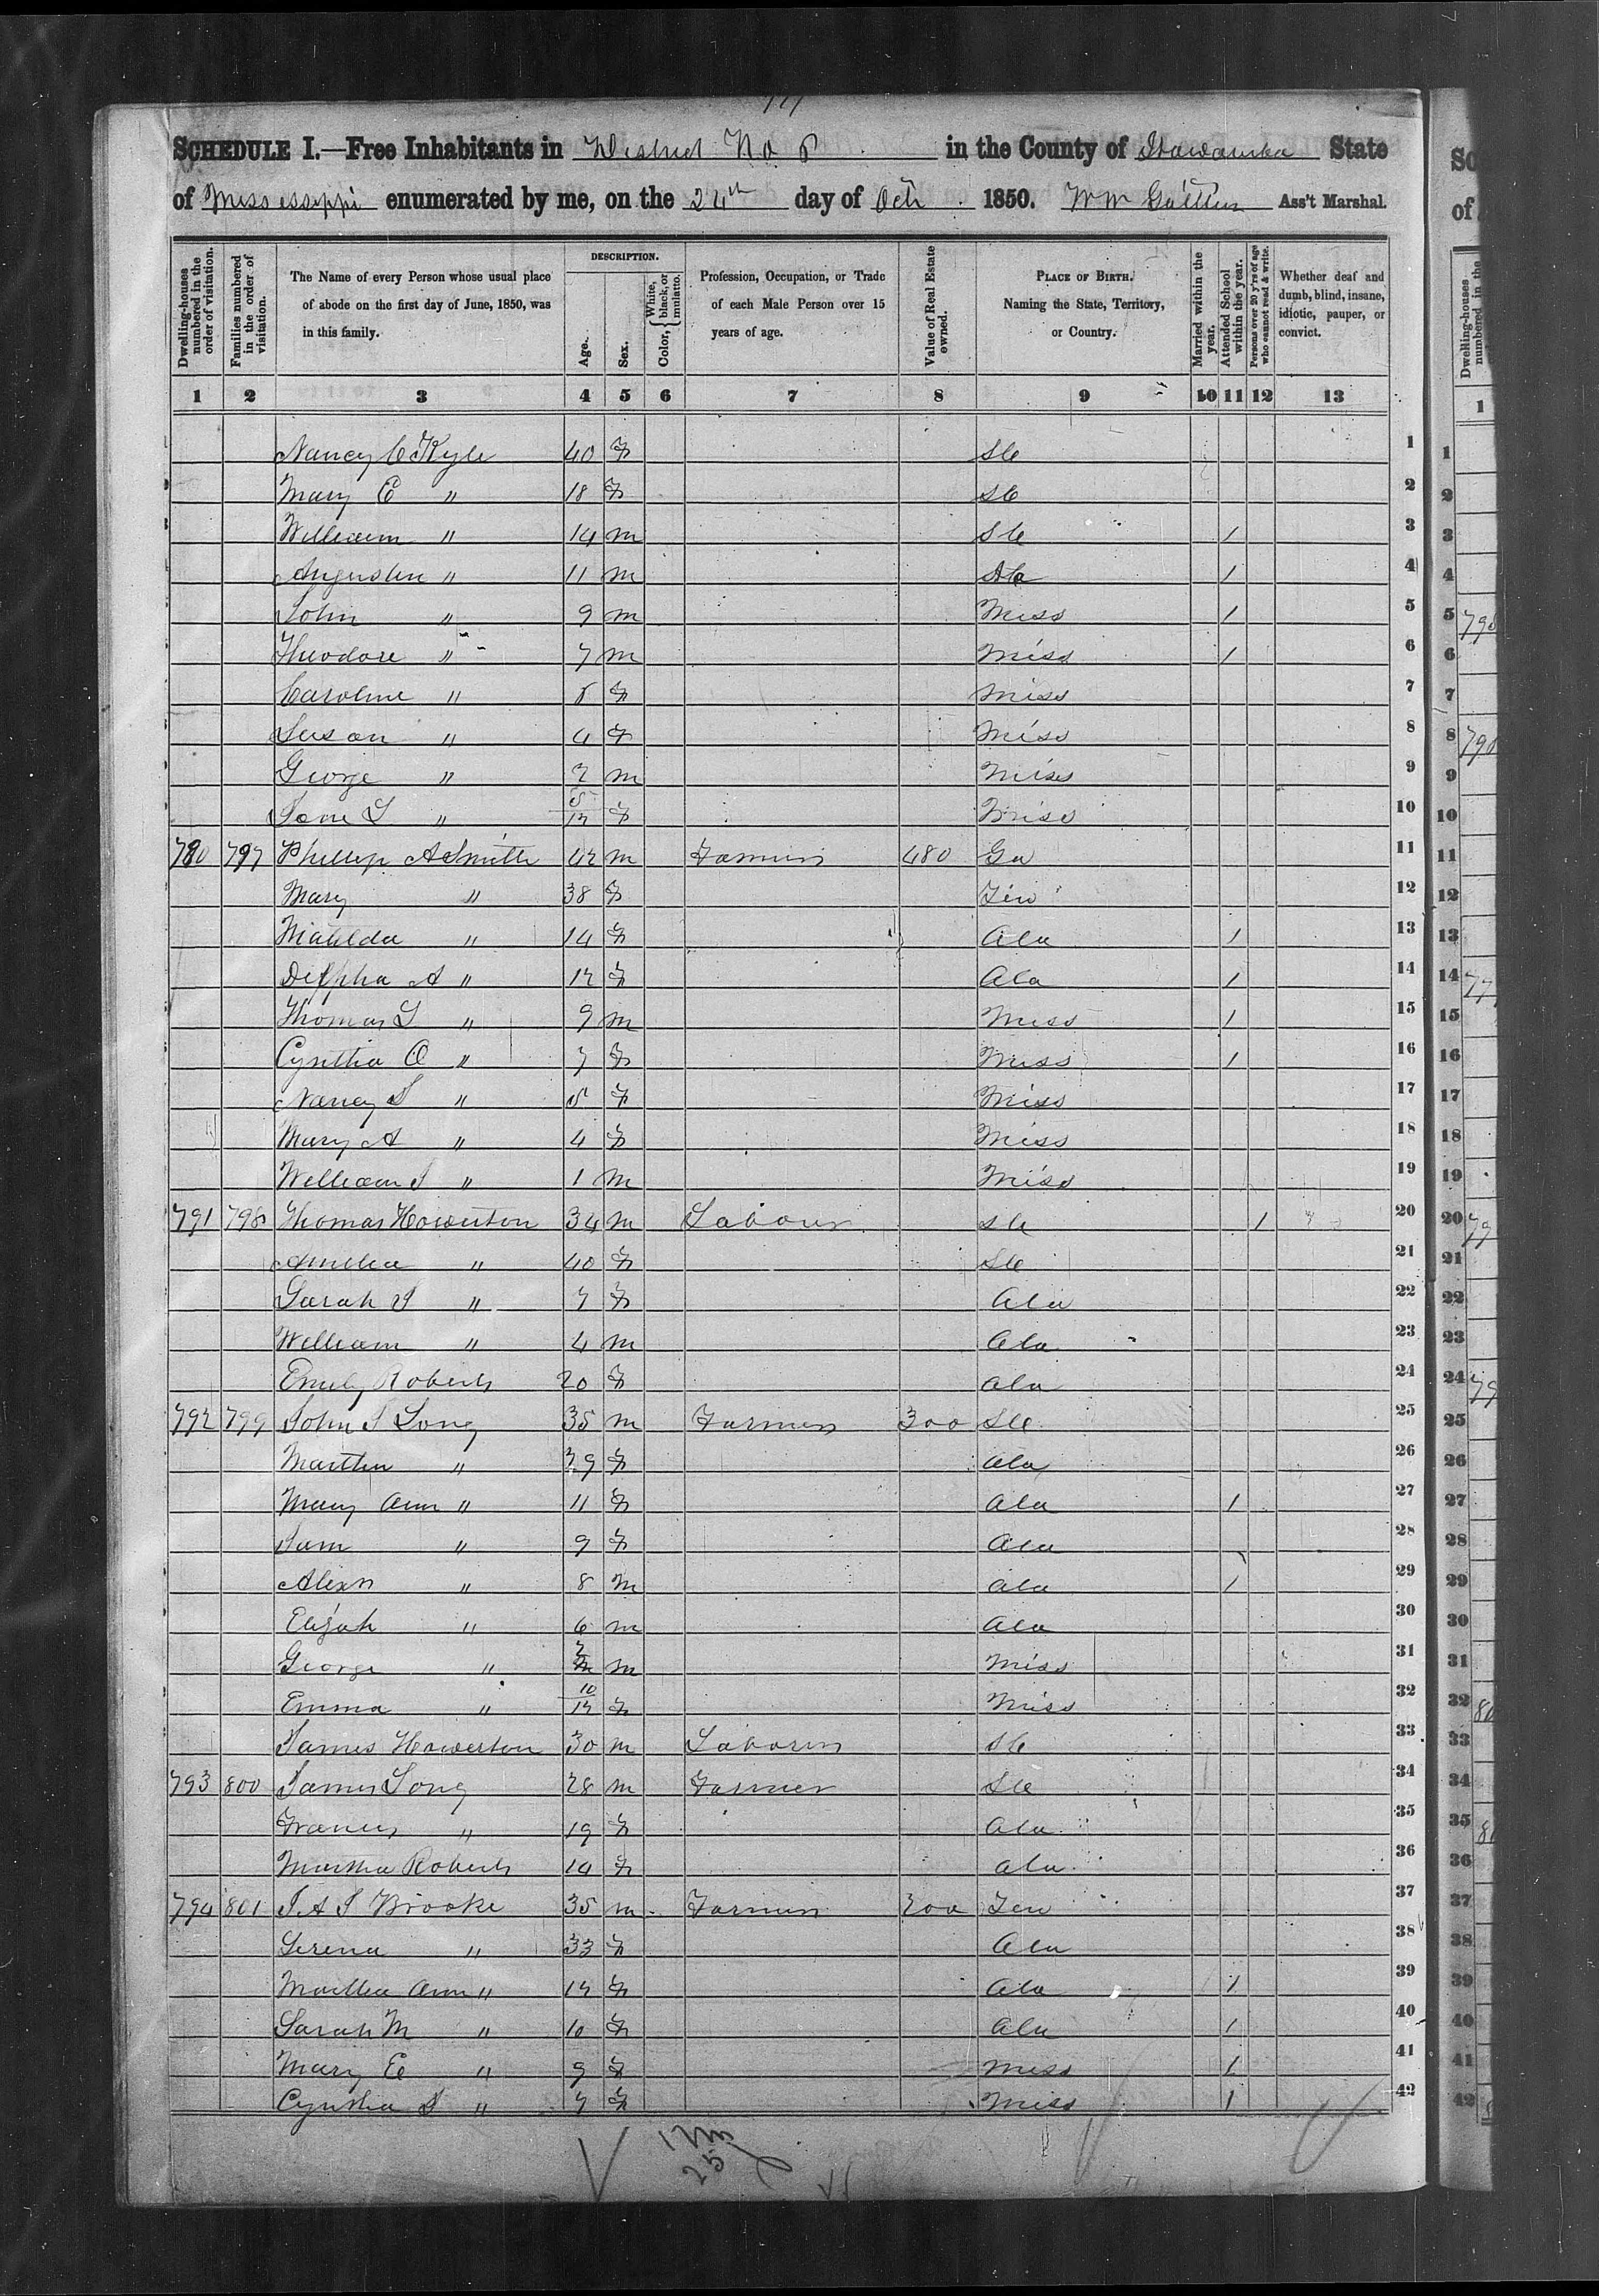 SCHEDULE I.—Free Inhabitants in District No 8 in the County of Itawamba State
of Mississippi enumerated by me, on the 24th day of Oct 1850. Wm Ass't Marshal.
Dwelling-houses numbered in the order of visitation.
Families numbered in the order of visitation.
The Name of every Person whose usual place of abode on the first day of June, 1850, was in this family.
DESCRIPTION.
Age.
Sex.
Color, { White, black, or mulatto.
Profession, Occupation, or Trade of each Male Person over 15 years of age.
Value of Real Estate owned.
PLACE OF BIRTH. Naming the State, Territory, or Country.
Married within the year.
Attended School within the year.
Persons over 20 y'rs of age who cannot read & write.
Whether deaf and dumb, blind, insane, idiotic, pauper, or convict.
1 2 3 4 5 6 7 8 9 10 11 12 13
Nancy C Kyle 40 F SC 1
Mary E " 18 F SC 2
William " 14 m SC / 3
" 11 m / 4
John " 9 m Miss / 5
Theodore " 7 m Miss / 6
Caroline " F Miss 7
Susan " 4 F Miss 8
George " 2 m Miss 9
Jane L " 5/12 F Miss 10
790 797 Phillip A Smith 42 m Farmer 480 Ga 11
Mary " 38 F Ten 12
Matilda " 14 F Ala / 13
Delpha A " 12 F Ala / 14
Thomas L " 9 m Miss / 15
Cynthia O " 7 F Miss / 16
Nancy J " 5 F Miss 17
Mary A " 4 F Miss 18
William J " 1 m Miss 19
791 798 Thomas Howerton 34 m Laborer SC / 20
Amelia " 40 F SC 21
Sarah J " 7 F Ala 22
William " 4 m Ala 23
Emily Roberts 20 F Ala 24
792 799 John J Long 35 m Farmer 300 SC 25
Martha " 29 F Ala 26
Mary Ann " 11 F Ala / 27
" 9 F Ala 28
Alexr " 8 m Ala / 29
Elijah " 6 m Ala 30
George " 2 m Miss 31
Emma " 10/12 F Miss 32
James Howerton 30 m Laborer SC 33
793 800 James Long 28 m Farmer SC 34
Frances " 19 F Ala 35
Martha Roberts 14 F Ala 36
794 801 J A J Brooke 35 m Farmer 200 Ten 37
Serena " 33 F Ala 38
Martha Ann " 12 F Ala / 39
Sarah M " 10 F Ala / 40
Mary E " 9 F Miss / 41
Cyntha J " 7 F Miss / 42